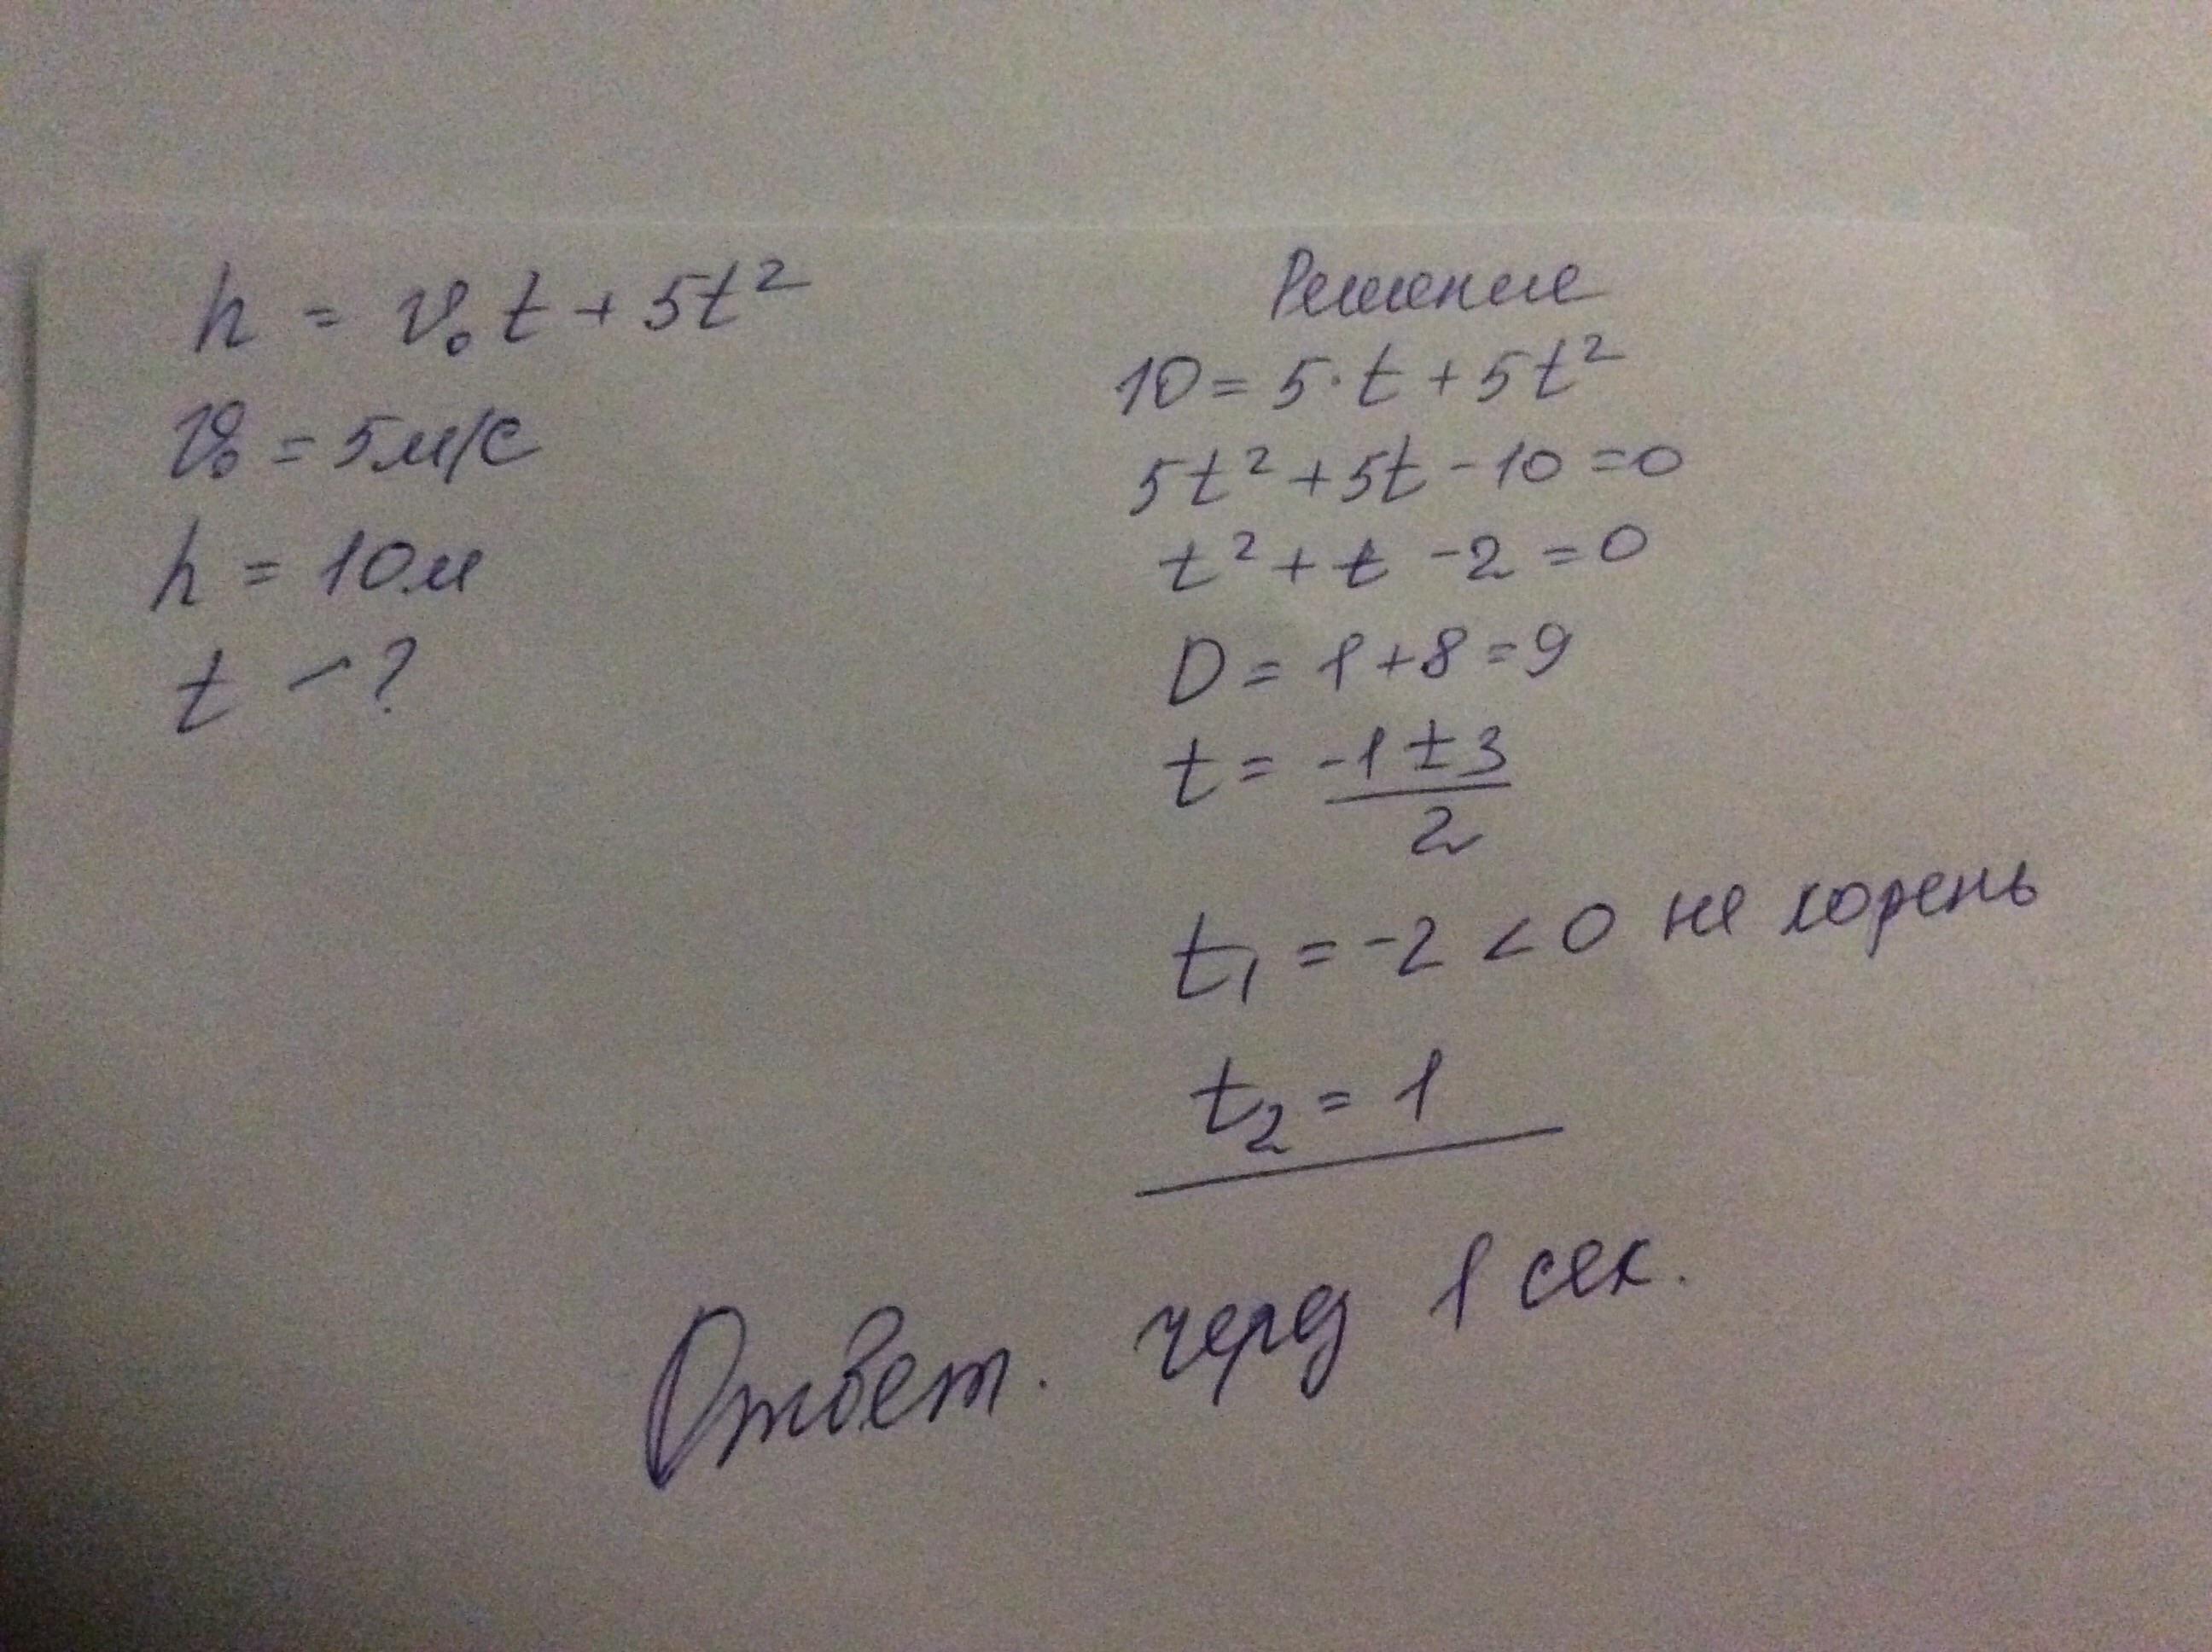 h = v₀t + 5t²
v₀ = 5м/с
h = 10м
t - ?
Решение
10 = 5·t + 5t²
5t² + 5t - 10 = 0
t² + t - 2 = 0
D = 1 + 8 = 9
t = (-1 ± 3)/2
t₁ = -2 < 0 не корень
t₂ = 1
Ответ. через 1 сек.